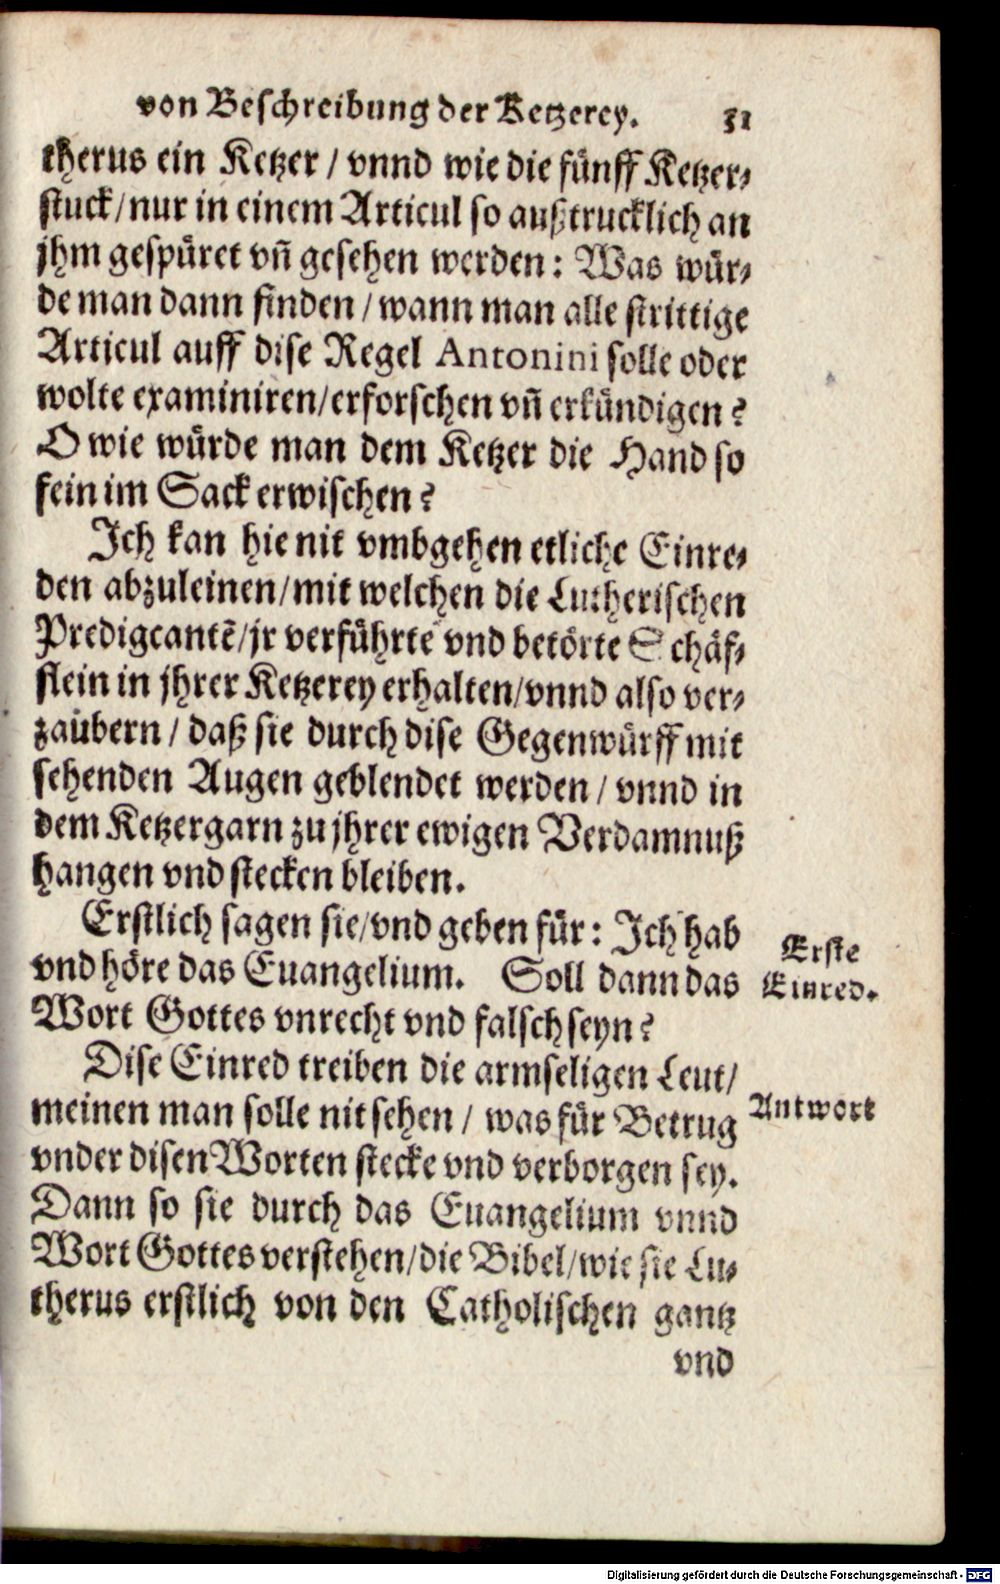 von Beschreibung der Ketzerey. 31
therus ein Ketzer / vnnd wie die fünff Ketzer⸗
stuck / nur in einem Articul so außtrucklich an
jhm gespüret vñ gesehen werden: Was wür⸗
de man dann finden / wann man alle strittige
Articul auff dise Regel Antonini solle oder
wolte examiniren / erforschen vñ erkündigen?
O wie würde man dem Ketzer die Hand so
fein im Sack erwischen?
Ich kan hie nit vmbgehen etliche Einre⸗
den abzuleinen / mit welchen die Lutherischen
Predigcantẽ / jr verführte vnd betörte Schäf⸗
flein in jhrer Ketzerey erhalten / vnnd also ver⸗
zaübern / daß sie durch dise Gegenwürff mit
sehenden Augen geblendet werden / vnnd in
dem Ketzergarn zu jhrer ewigen Verdamnuß
hangen vnd stecken bleiben.
Erstlich sagen sie / vnd geben für: Ich hab
vnd höre das Euangelium. Soll dann das
Wort Gottes vnrecht vnd falsch seyn?
Erste
Einred.
Dise Einred treiben die armseligen Leut /
meinen man solle nit sehen / was für Betrug
vnder disen Worten stecke vnd verborgen sey.
Dann so sie durch das Euangelium vnnd
Wort Gottes verstehen / die Bibel / wie sie Lu⸗
therus erstlich von den Catholischen gantz
Antwort
vnd
Digitalisierung gefördert durch die Deutsche Forschungsgemeinschaft - DFG